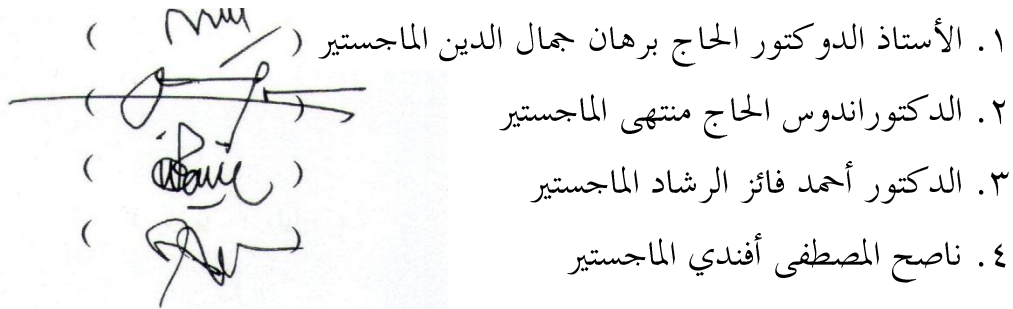 ١. الأستاذ الدوكتور الحاج برهان جمال الدين الماجستير ( )
٢. الدكتوراندوس الحاج منتهى الماجستير ( )
٣. الدكتور أحمد فائز الرشاد الماجستير ( )
٤. ناصح المصطفى أفندي الماجستير ( )